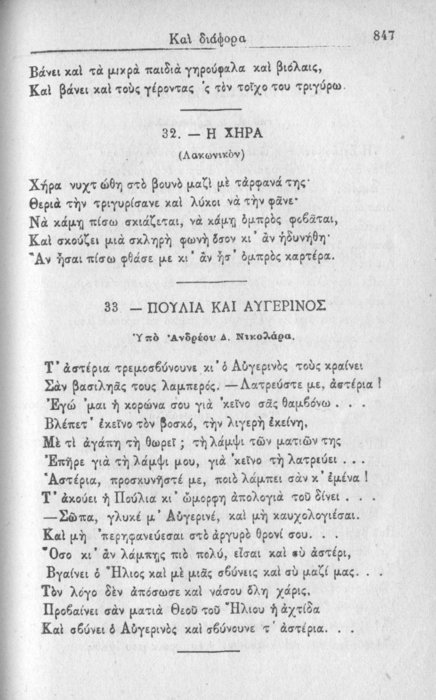 Καὶ διάφορα 847
Βάνει καὶ τὰ μικρὰ παιδιὰ γηρούφαλα καὶ βιόλαις,
Καὶ βάνει καὶ τοὺς γέροντας 'ς τὸν τοῖχο του τριγύρω.
32. — Η ΧΗΡΑ
(Λακωνικὸν)
Χήρα νυχτώθη στὸ βουνὸ μαζὶ μὲ τἀρφανά της·
Θεριὰ τὴν τριγυρίσανε καὶ λύκοι νὰ τὴν φᾶνε·
Νὰ κάμῃ πίσω σκιάζεται, νὰ κάμῃ ὀμπρὸς φοβᾶται,
Καὶ σκούζει μιὰ σκληρὴ φωνὴ ὅσον κι' ἂν ἠδυνήθη·
Ἂν ἦσαι πίσω φθάσε με κι' ἂν ἦσ' ὀμπρὸς καρτέρα.
33 — ΠΟΥΛΙΑ ΚΑΙ ΑΥΓΕΡΙΝΟΣ
Ὑπὸ Ἀνδρέου Δ. Νικολάρα.
Τ' ἀστέρια τρεμοσβύνουνε κι' ὁ Αὐγερινὸς τοὺς κραίνει
Σὰν βασιληᾶς τους λαμπερός. — Λατρεύστε με, ἀστέρια !
Ἐγώ 'μαι ἡ κορώνα σου γιὰ κεῖνο σᾶς θαμβόνω . . .
Βλέπετ' ἐκεῖνο τὸν βοσκό, τὴν λιγερὴ ἐκείνη,
Μὲ τὶ ἀγάπη τὴ θωρεῖ ; τὴ λάμψι τῶν ματιῶν της
Ἐπῆρε γιὰ τὴ λάμψι μου, γιὰ 'κεῖνο τὴ λατρεύει . . .
Ἀστέρια, προσκυνῆστέ με, ποιὸ λάμπει σὰν κ' ἐμένα !
Τ' ἀκούει ἡ Πούλια κι' ὤμορφη ἀπολογιὰ τοῦ δίνει . . .
—Σῶπα, γλυκέ μ' Αὐγερινέ, καὶ μὴ καυχολογιέσαι.
Καὶ μὴ 'περηφανεύεσαι στὸ ἀργυρὸ θρονί σου. . .
Ὅσο κι' ἂν λάμπῃς πιὸ πολύ, εἶσαι καὶ σὺ ἀστέρι,
Βγαίνει ὁ Ἥλιος καὶ μὲ μιᾶς σβύνεις καὶ σὺ μαζί μας. . .
Τὸν λόγο δὲν ἀπόσωσε καὶ νάσου ὅλη χάρις,
Προβαίνει σὰν ματιὰ Θεοῦ τοῦ Ἥλιου ἡ ἀχτίδα
Καὶ σβύνει ὁ Αὐγερινὸς καὶ σβύνουνε τ' ἀστέρια. . .